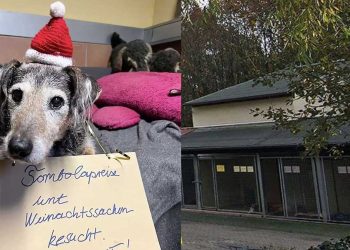 Tombolapreise
und
Weinachtssachen
gesucht.